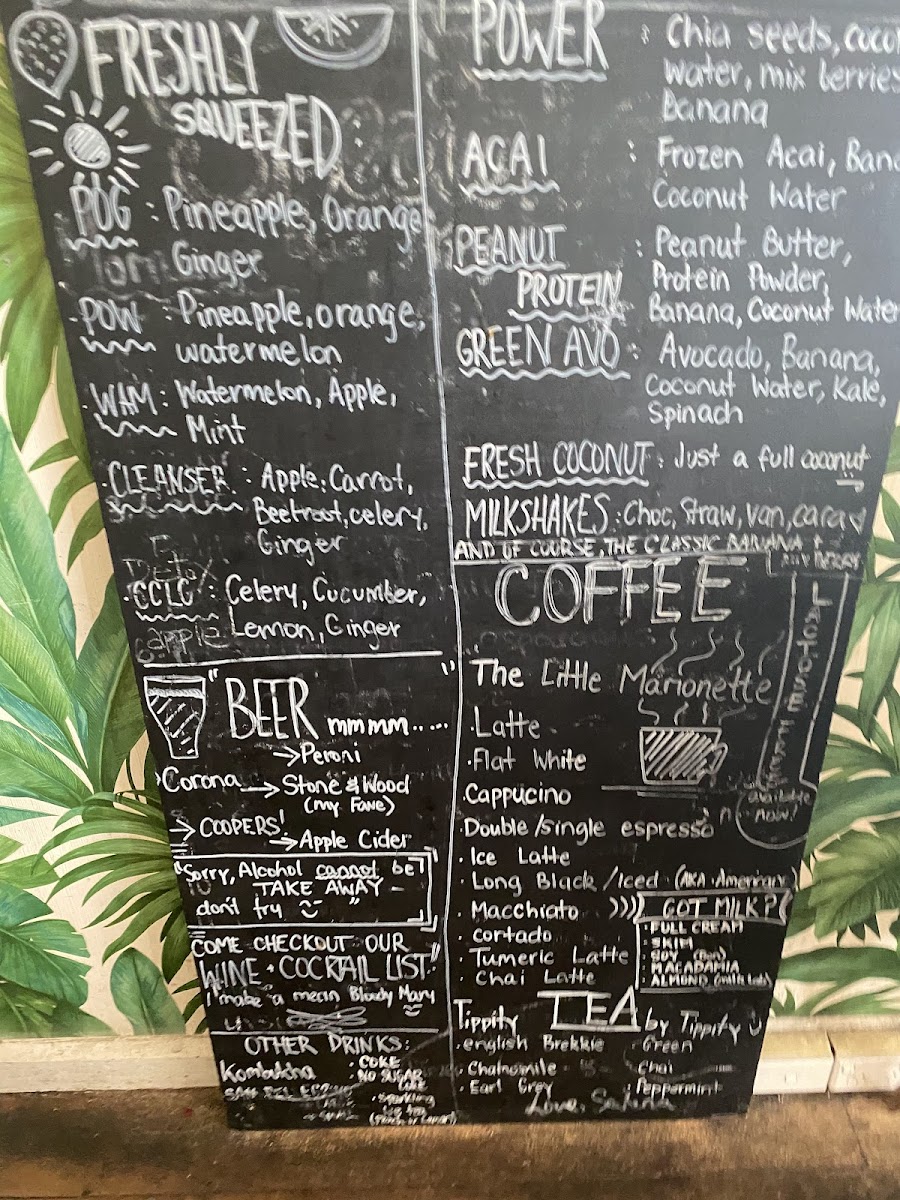 FRESHLY
SQUEEZED:
POG : Pineapple, Orange
Ginger
POW : Pineapple, orange,
watermelon
WAM : Watermelon, Apple,
Mint
CLEANSER : Apple, Carrot,
Beetroot, celery,
Ginger
CCLG : Celery, Cucumber,
Lemon, Ginger
"BEER mmmm....."
→ Peroni
Corona → Stone & Wood
(my Fave)
→ COOPERS!
→ Apple Cider
"Sorry, Alcohol cannot be
TAKE AWAY -
don't try "
COME CHECKOUT OUR
WINE + COCKTAIL LIST"
I make a mean Bloody Mary
OTHER DRINKS:
Kombucha
• COKE
• NO SUGAR
• Sparkling
POWER : Chia seeds, coco
water, mix berries
Banana
ACAI : Frozen Acai, Bana
Coconut Water
PEANUT : Peanut Butter,
PROTEIN Protein Powder,
Banana, Coconut Water
GREEN AVO : Avocado, Banana,
Coconut Water, Kale,
Spinach
FRESH COCONUT : Just a full coconut
MILKSHAKES : Choc, Straw, Van,
AND OF COURSE, THE CLASSIC BANANA +
COFFEE
The Little Marionette
• Latte
• Flat White
• Cappucino
• Double/single espresso
• Ice Latte
• Long Black/Iced (AKA American)
• Macchiato
• Cortado
• Tumeric Latte
• Chai Latte
available
now!
))) GOT MILK?
• FULL CREAM
• SKIM
• SOY
• MACADAMIA
• ALMOND
Tippity TEA by Tippity
• english Brekkie • Green
• Chamomile • Chai
• Earl Grey • Peppermint